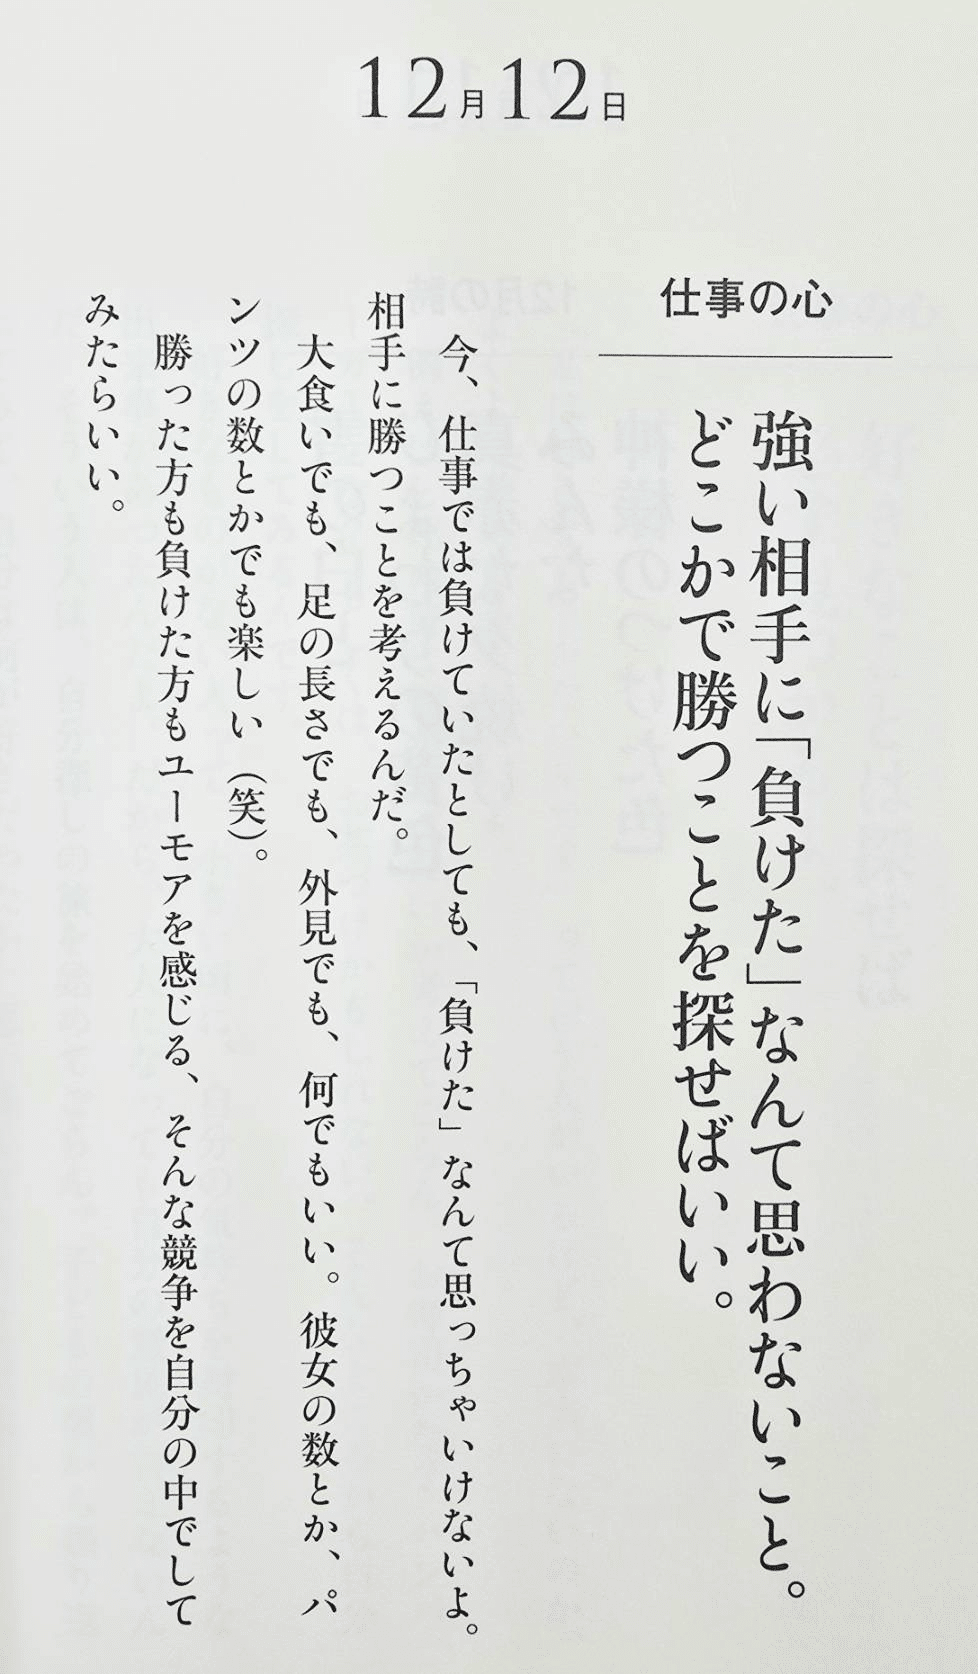 12月12日
仕事の心
強い相手に「負けた」なんて思わないこと。
どこかで勝つことを探せばいい。
今、仕事では負けていたとしても、「負けた」なんて思っちゃいけないよ。
相手に勝つことを考えるんだ。
大食いでも、足の長さでも、外見でも、何でもいい。彼女の数とか、パ
ンツの数とかでも楽しい（笑）。
勝った方も負けた方もユーモアを感じる、そんな競争を自分の中でして
みたらいい。